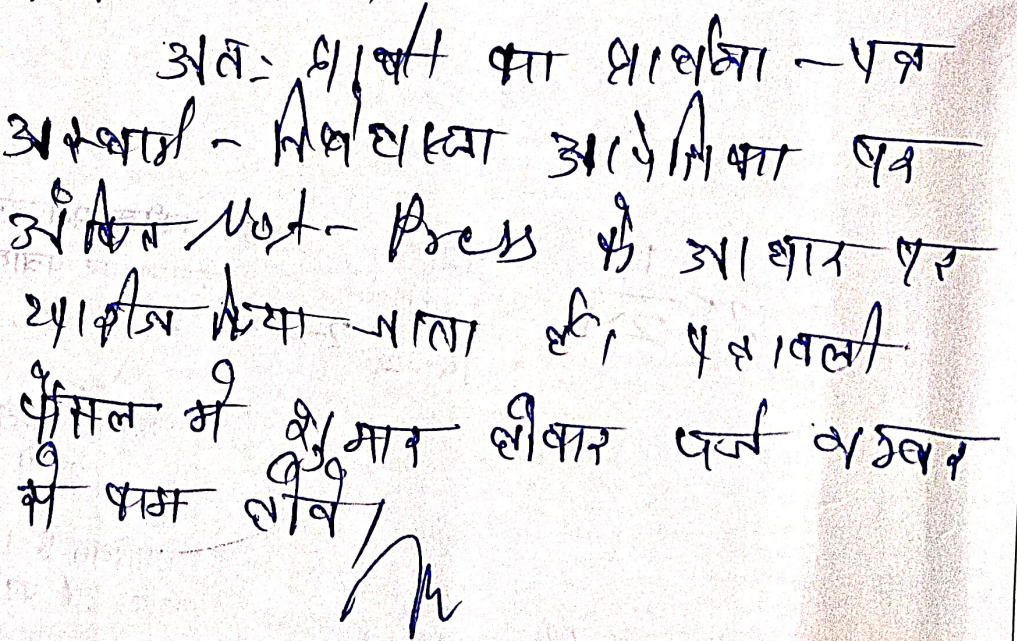 अतः प्रार्थी का प्रार्थना-पत्र
अस्थाई-निषेधाज्ञा आदेशिका पर
अंकित Not-Press के आधार पर
खारीज किया जाता है। पत्रावली
फैसल में शुमार होकर दर्ज नम्बर
से कम होवे।